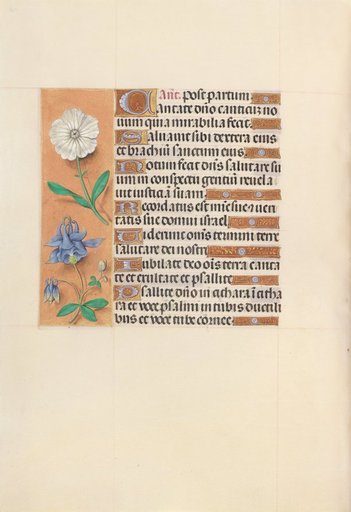 Añt. post partum
Cantate dño canticũ no
uum quia mirabilia fecit.
Saluauit sibi dextera eius
et brachiũ sanctum eius.
Notum fecit dñs salutare su
um in conspectu gentiũ reuela
uit iusticiã suam.
Recordatus est mie sue et ueri
tatis sue domui israel
Uiderunt oms termini terre
salutare dei nostri
Iubilate deo ois terra canta
te et exultate et psallite
Psallite dño in cithara ĩ citha
ra et uoce psalmi in tubis ductili
bus et uoce tube cornee.